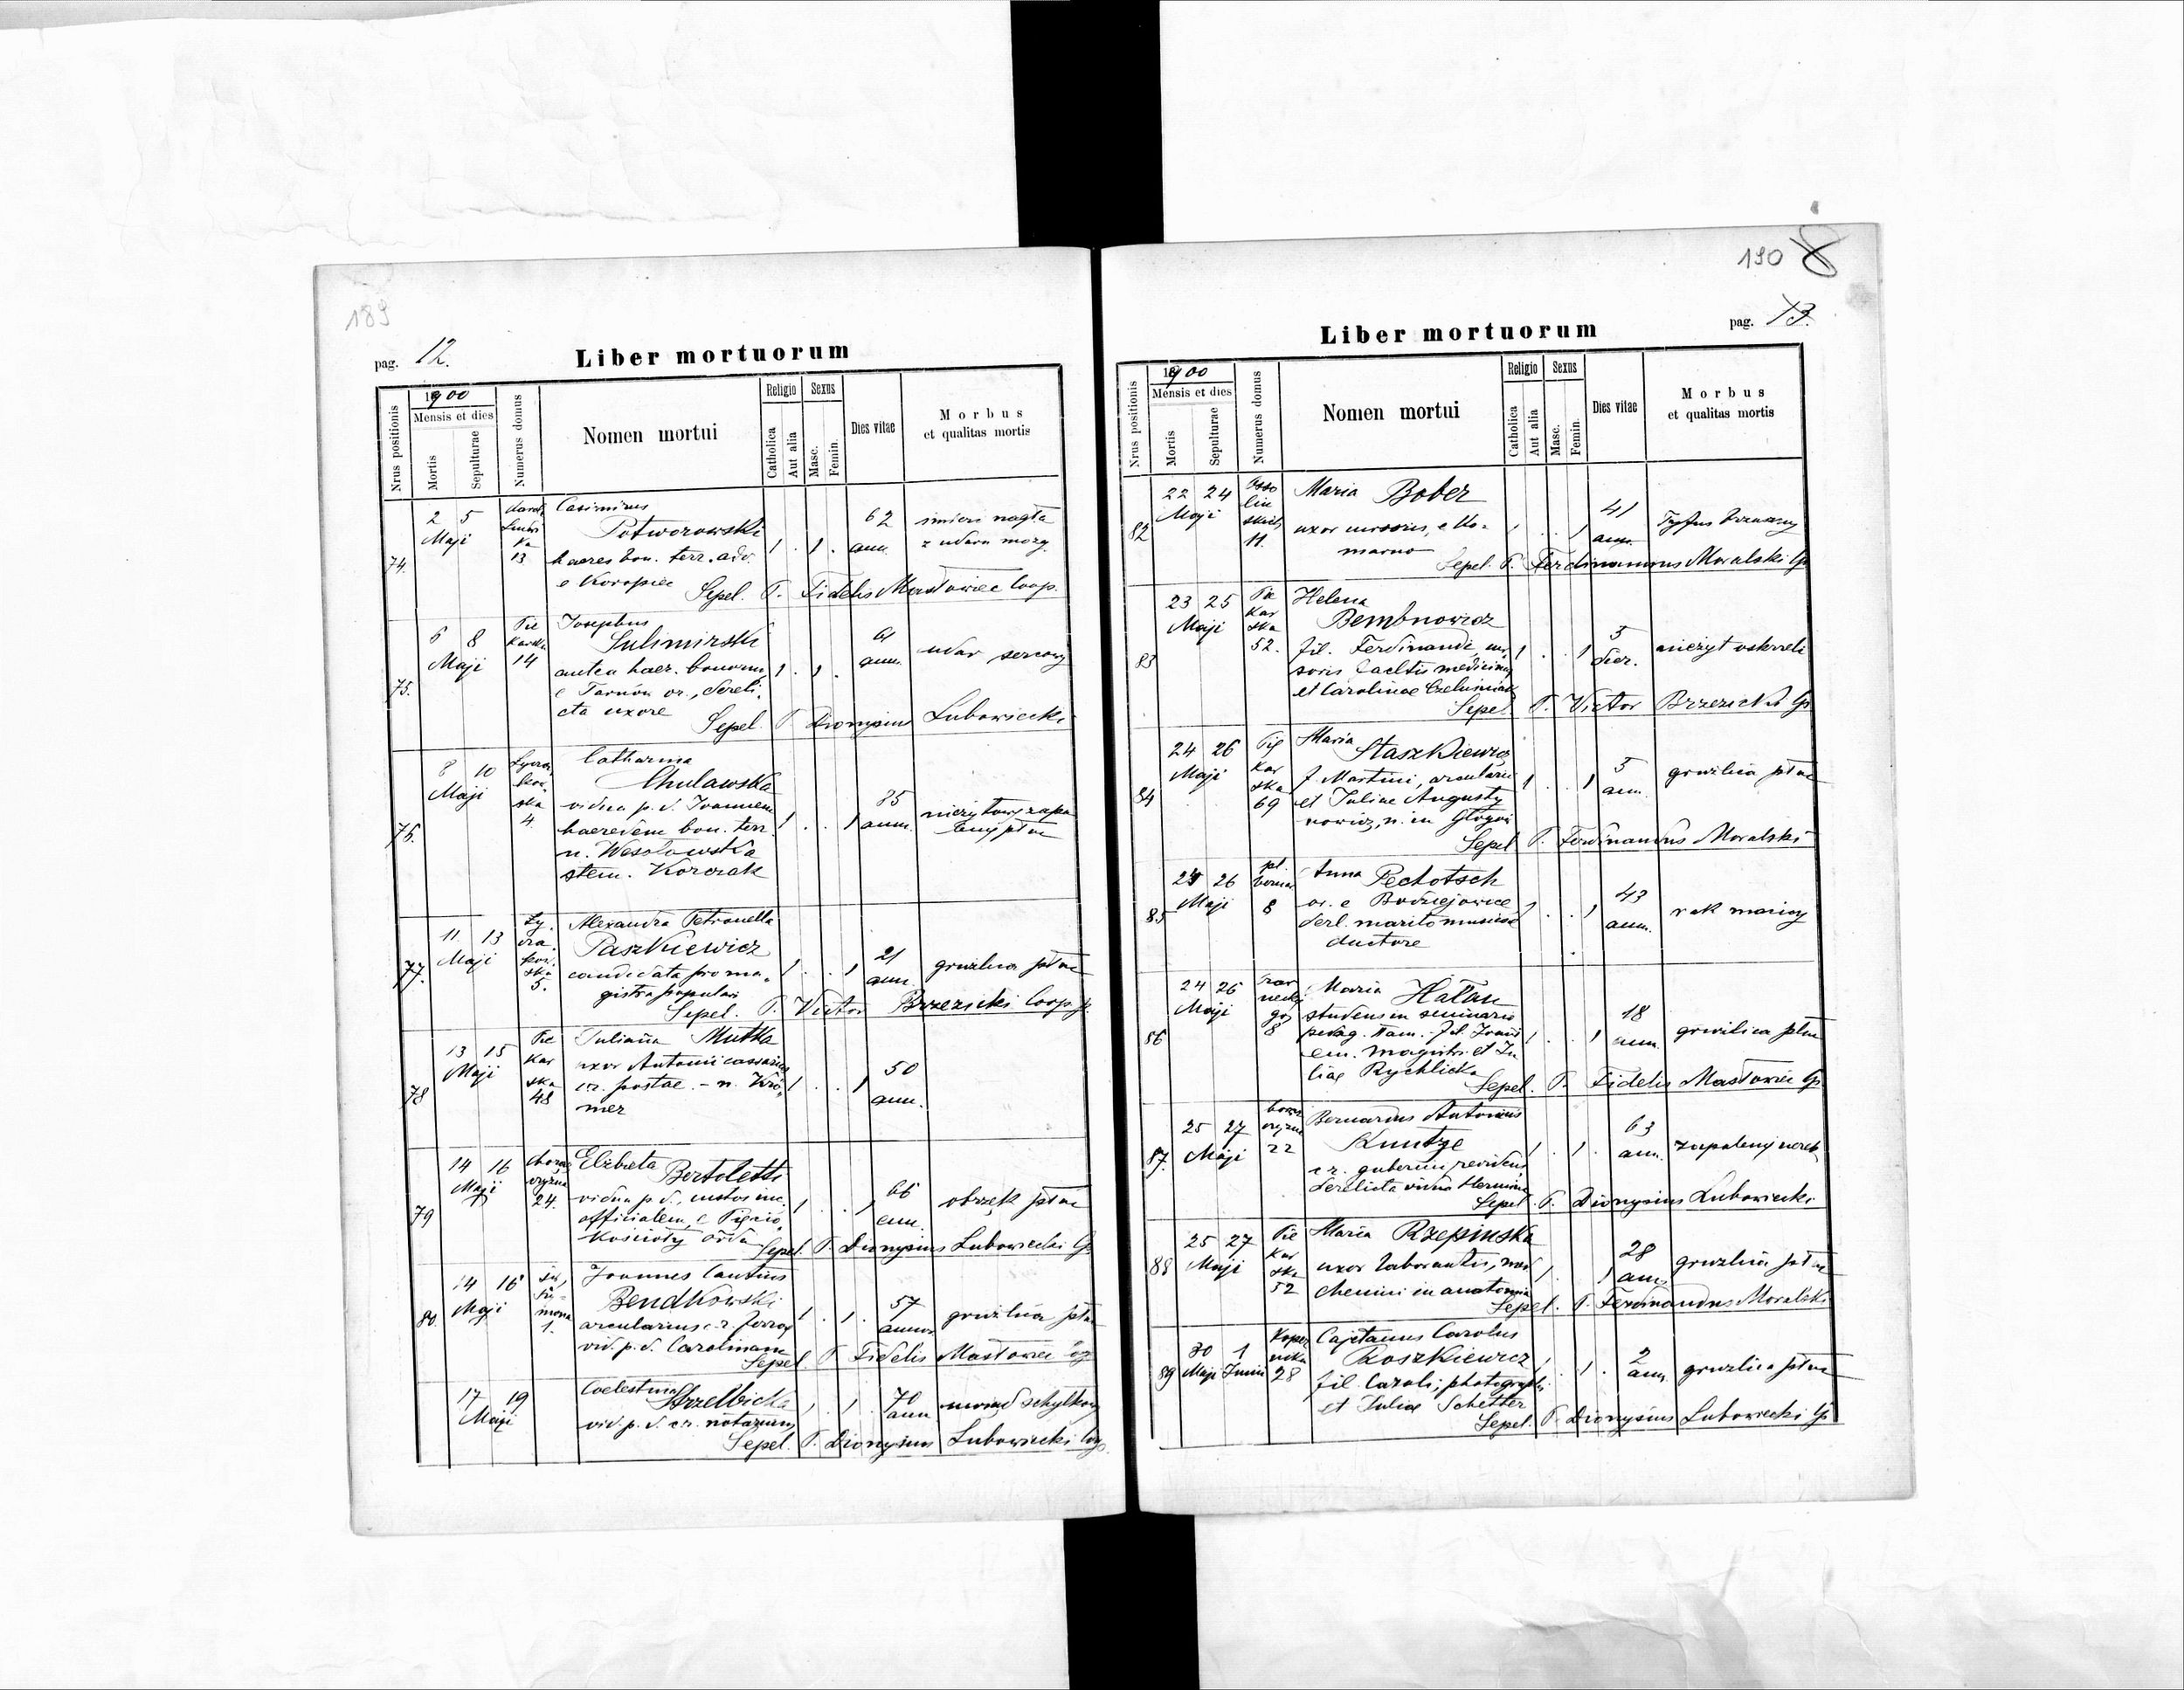 189
pag. 12.
Liber mortuorum
Nrus positionis
1900
Mensis et dies
Mortis
Sepulturae
Numerus domus
Nomen mortui
Religio
Catholica
Aut alia
Sexus
Masc.
Femin.
Dies vitae
Morbus
et qualitas mortis
74.
2 5
Maji
13
Casimirus
Potworowski
haeres bon. terr. adv.
e Koropiec
1 . 1 .
62
ann.
śmierć nagła
z udaru mózg.
Sepel. P. Fidelis Masłowiec Coop.
75.
6 8
Maji
Pie
karska
14
Josephus
Sulimirski
antea haer. bonorum
e Tarnów or., dereli-
cta uxore
1 . 1 .
61
ann.
udar sercowy
Sepel. P. Dionysius Lubowiecki
76.
8 10
Maji
Łycza
kow
ska
4.
Catharina
Chulawska
vidua p. d. Joannem
haeredem bon. terr.
n. Wesołowska
stem. Korczak
1 . . 1
85
ann.
nieżytowy zapa
leny płuc
77.
11 13
Maji
Ły
cza
kow
ska
5.
Alexandra Petronella
Paszkiewicz
candidata pro ma-
gistra populari
1 . . 1
21
ann.
gruźlica płuc
Sepel. P. Victor Brzezicki Coop.
78
13 15
Maji
Pie
kar
ska
48
Juliana Mutka
uxor Antonii cassarius
c.r. postae. - n. Krö-
mer
1 . . 1
50
ann.
79
14 16
Maji
24.
Elżbieta
Bertoletti
vidua p. d.
officialem, e Pięcio
kościoły
1 . . 1
66
ann.
obrzęk płuc
Sepel. P. Dionysius Lubowiecki Cp
80.
14 16
Maji
1.
Joannes Cantius
Bendkowski
arcularius c.r. ferrov
vid. p. d. Carolinam
1 . 1 .
57
annor
gruźlica płuc
Sepel. P. Fidelis Masłowiec Cp
17 19
Maji
Coelestina Strzelbicka
vid. p. d. c.r. notarium
1 . 1 .
70
ann
uwiąd schyłkowy
Sepel. P. Dionysius Lubowiecki Coop.
190 8
pag. 13.
Liber mortuorum
Nrus positionis
1900
Mensis et dies
Mortis
Sepulturae
Numerus domus
Nomen mortui
Religio
Catholica
Aut alia
Sexus
Masc.
Femin.
Dies vitae
Morbus
et qualitas mortis
82
22 24
Maji
Osso
liń
skich
11.
Maria Bober
uxor cursoris, e Ko-
marno
1 . . 1
41
ann.
Tyfus brzuszny
Sepel. P. Ferdinandus Moralski Cp
83
23 25
Maji
Pie
kar
ska
52.
Helena
Bembnowicz
fil. Ferdinandi, cur
soris facltis medicinae
et Carolinae
1 . . 1
5
dier.
nieżyt oskrzeli
Sepel. P. Victor Brzezicki Cp
84
24 26
Maji
Pie
kar
ska
69
Maria
Staszkiewicz
f. Martini, arcularii
et Juliae Augusty
nowicz, n. in Głogów
1 . . 1
5
ann.
gruźlica płuc
Sepel. P. Ferdinandus Moralski
85
24 26
Maji
pl.
Bernar
8
Anna Pechotsch
or. e Bodziejowice
derl. marito musicae
ductore
1 . . 1
43
ann.
rak macicy
86
24 26
Maji
Czar
necki
go
8
Maria Hałan
studens in seminario
pedag. fam. fil. Joann
em. magistri et Ju
liae Rychlicka
1 . . 1
18
ann.
gruźlica płuc
Sepel. P. Fidelis Masłowiec Cp
87.
25 27
Maji
22
Bernardus Antonius
Kuntze
c.r. gubernii revidens
derelicta vidua Hermina
1 . 1 .
63
ann.
zapaleny nerek
Sepel. P. Dionysius Lubowiecki
88
25 27
Maji
Pie
kar
ska
52
Maria Rzepinska
uxor laborantis, nas
chemini in anatomia
1 . . 1
28
ann.
gruźlica płuc
Sepel. P. Ferdinandus Moralski
89
30 1
Maji Junii
Koper
nika
28
Cajetanus Carolus
Roszkiewicz
fil. Caroli, photographi
et Juliae Schetter
1 . 1 .
2
ann.
gruźlica płuc
Sepel. P. Dionysius Lubowiecki Cp